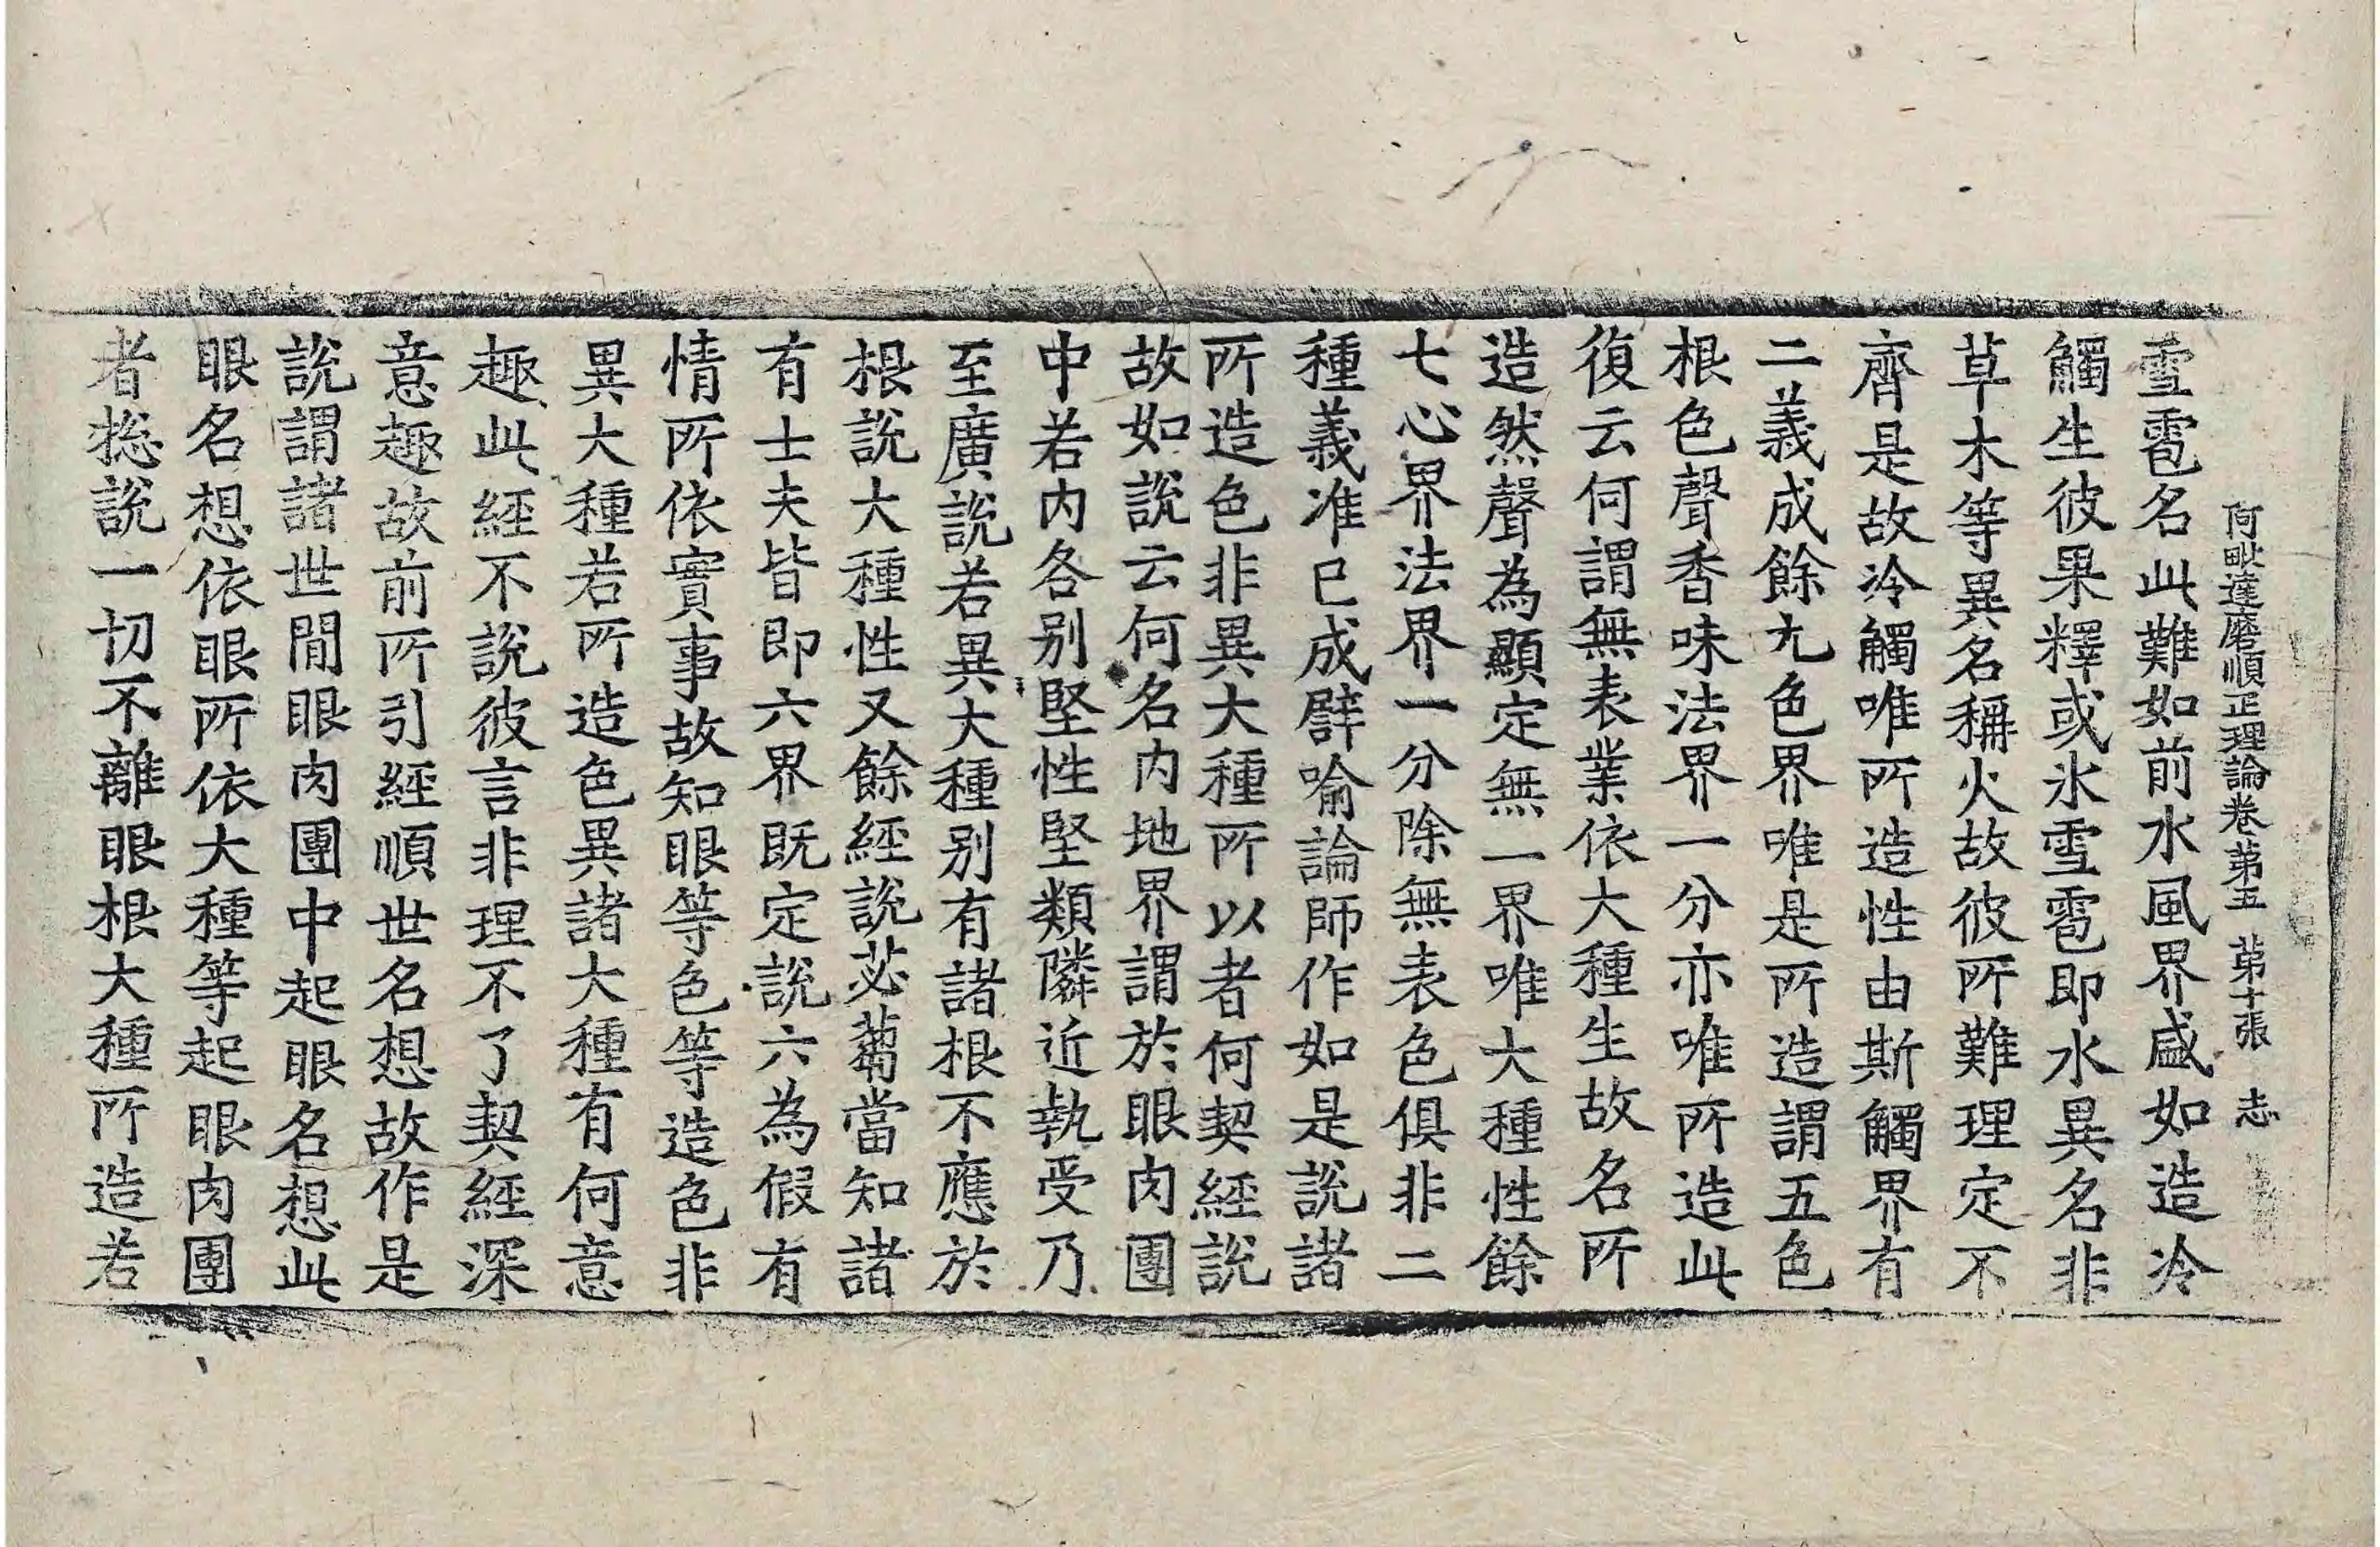 阿毗達磨順正理論卷第五　第十張　志
雪雹名此難如前水風界盛如造冷
觸生彼果釋或氷雪雹即水異名非
草木等異名稱火故彼所難理定不
齊是故冷觸唯所造性由斯觸界有
二義成餘九色界唯是所造謂五色
根色聲香味法界一分亦唯所造此
復云何謂無表業依大種生故名所
造然聲為顯定無一界唯大種性餘
七心界法界一分除無表色俱非二
種義准已成譬喻論師作如是說諸
所造色非異大種所以者何契經說
故如說云何名內地界謂於眼肉團
中若內各別堅性堅類隣近執受乃
至廣說若異大種別有諸根不應於
根說大種性又餘經說苾蒭當知諸
有士夫皆即六界既定說六為假有
情所依實事故知眼等色等造色非
異大種若所造色異諸大種有何意
趣此經不說彼言非理不了契經深
意趣故前所引經順世名想故作是
說謂諸世間眼肉團中起眼名想此
眼名想依眼所依大種等起眼肉團
者捴說一切不離眼根大種所造若